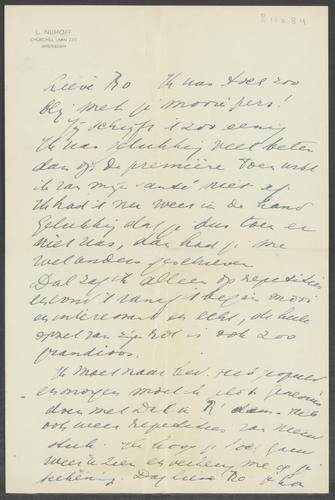 L. NIJHOFF
CHURCHILL LAAN 223
AMSTERDAM
Lieve Ro Ik was toch zoo
blij met je mooie pers!
Jij schrijft 't zoo eenig
Ik was gelukkig veel beter
dan op de première toen wist
ik van mijn niet af
Ik had 't nu weer in de hand
Gelukkig dat je dus toen er
niet was, dan had je me
wel anders geschreven
Dat zag ik alleen op repetities
en vond 't vanaf 't begin mooi
en interessant en echt, de heele
opzet van zijn rol is ook zoo
grandioos.
Ik moet naar bed. Heb
en morgen moet ik
doen met Dal in R'dam. Heb
ook weer repetities van nieuw
stuk. Ik hoop je toch gauw
weer te zien en verheug me op je
Dag lieve Ro